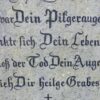 war Dein Pilgerauge
nkte sich Dein Leben
ch der Tod Dein Auge
ich Dir heilge Grabes